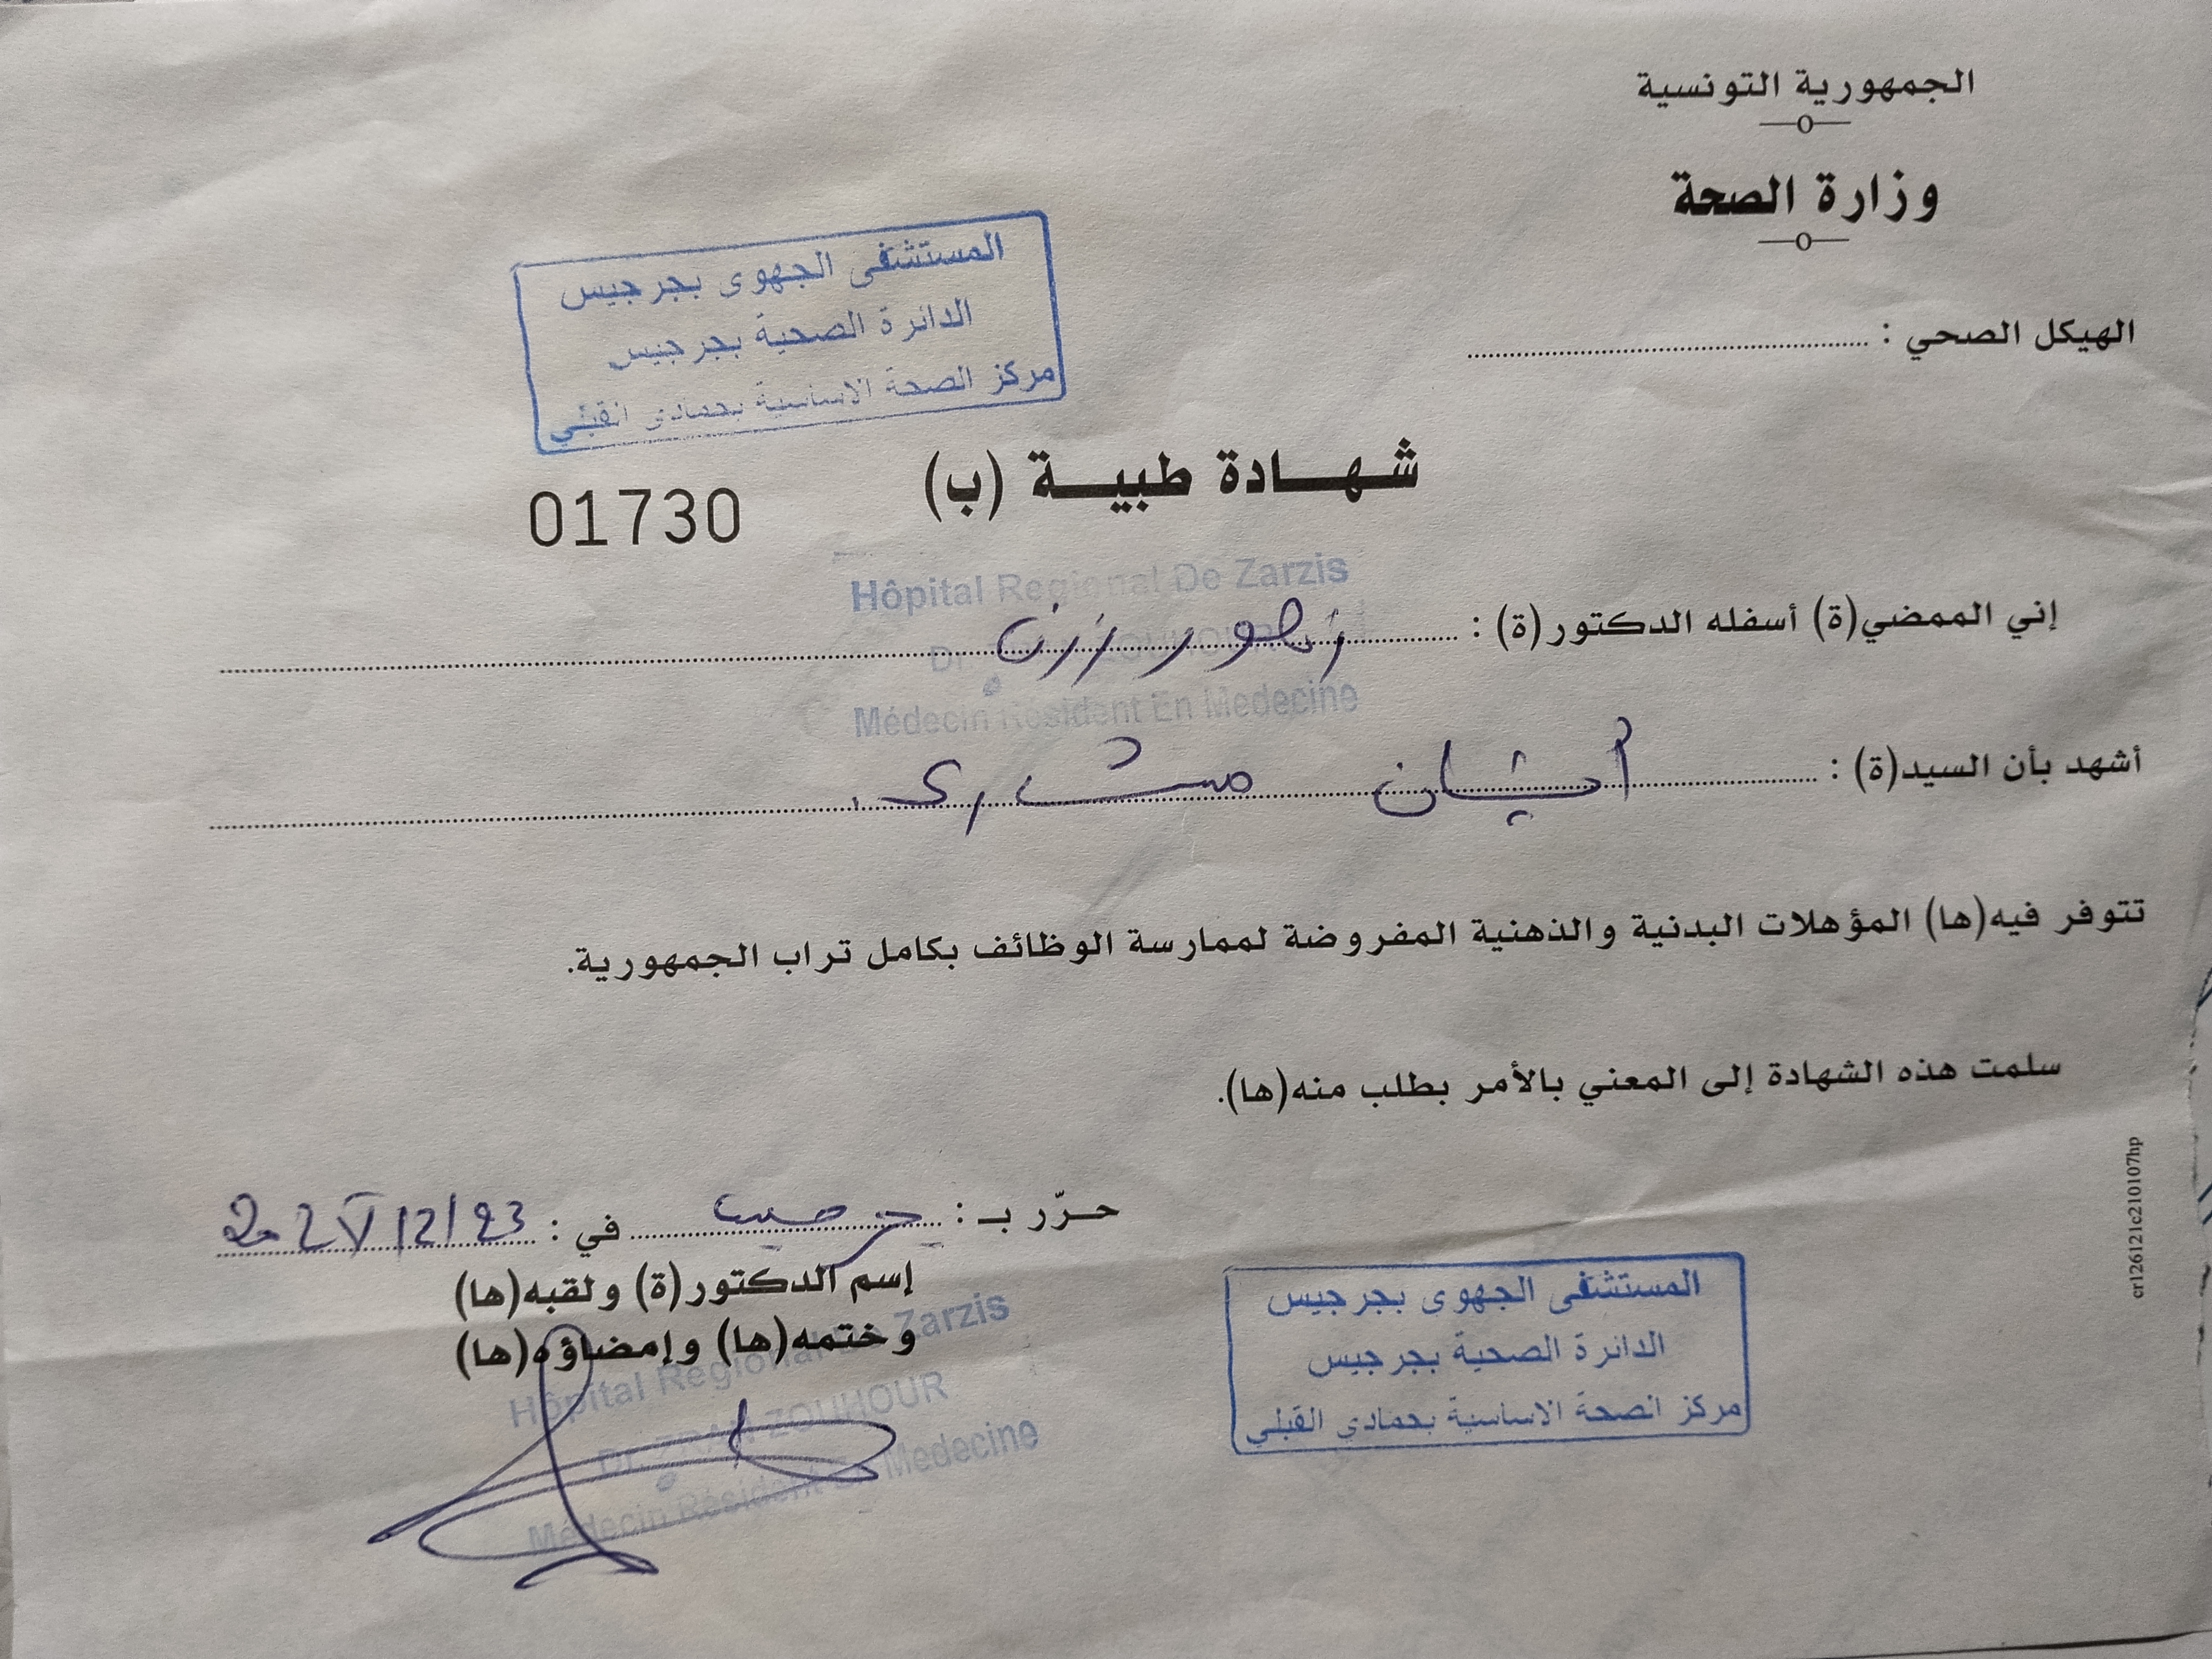 الجمهورية التونسية
وزارة الصحة
المستشفى الجهوي بجرجيس
الدائرة الصحية بجرجيس
مركز الصحة الاساسية بحمادي القبلي
الهيكل الصحي :
شهادة طبية (ب)
01730
Hôpital Regional De Zarzis
إني الممضي(ة) أسفله الدكتور(ة) : زهور زرن
Dr. ZOUHOUR
Médecin Résident En Medecine
أشهد بأن السيد(ة) :
تتوفر فيه(ها) المؤهلات البدنية والذهنية المفروضة لممارسة الوظائف بكامل تراب الجمهورية.
سلمت هذه الشهادة إلى المعني بالأمر بطلب منه(ها).
حرّر بـ : جرجيس في : 23/12/202
إسم الدكتور(ة) ولقبه(ها)
وختمه(ها) وإمضاؤه(ها)
Hôpital Regional Zarzis
Dr. ZRAN ZOUHOUR
Médecin Résident En Medecine
المستشفى الجهوي بجرجيس
الدائرة الصحية بجرجيس
مركز الصحة الاساسية بحمادي القبلي
cr126121c210107hp